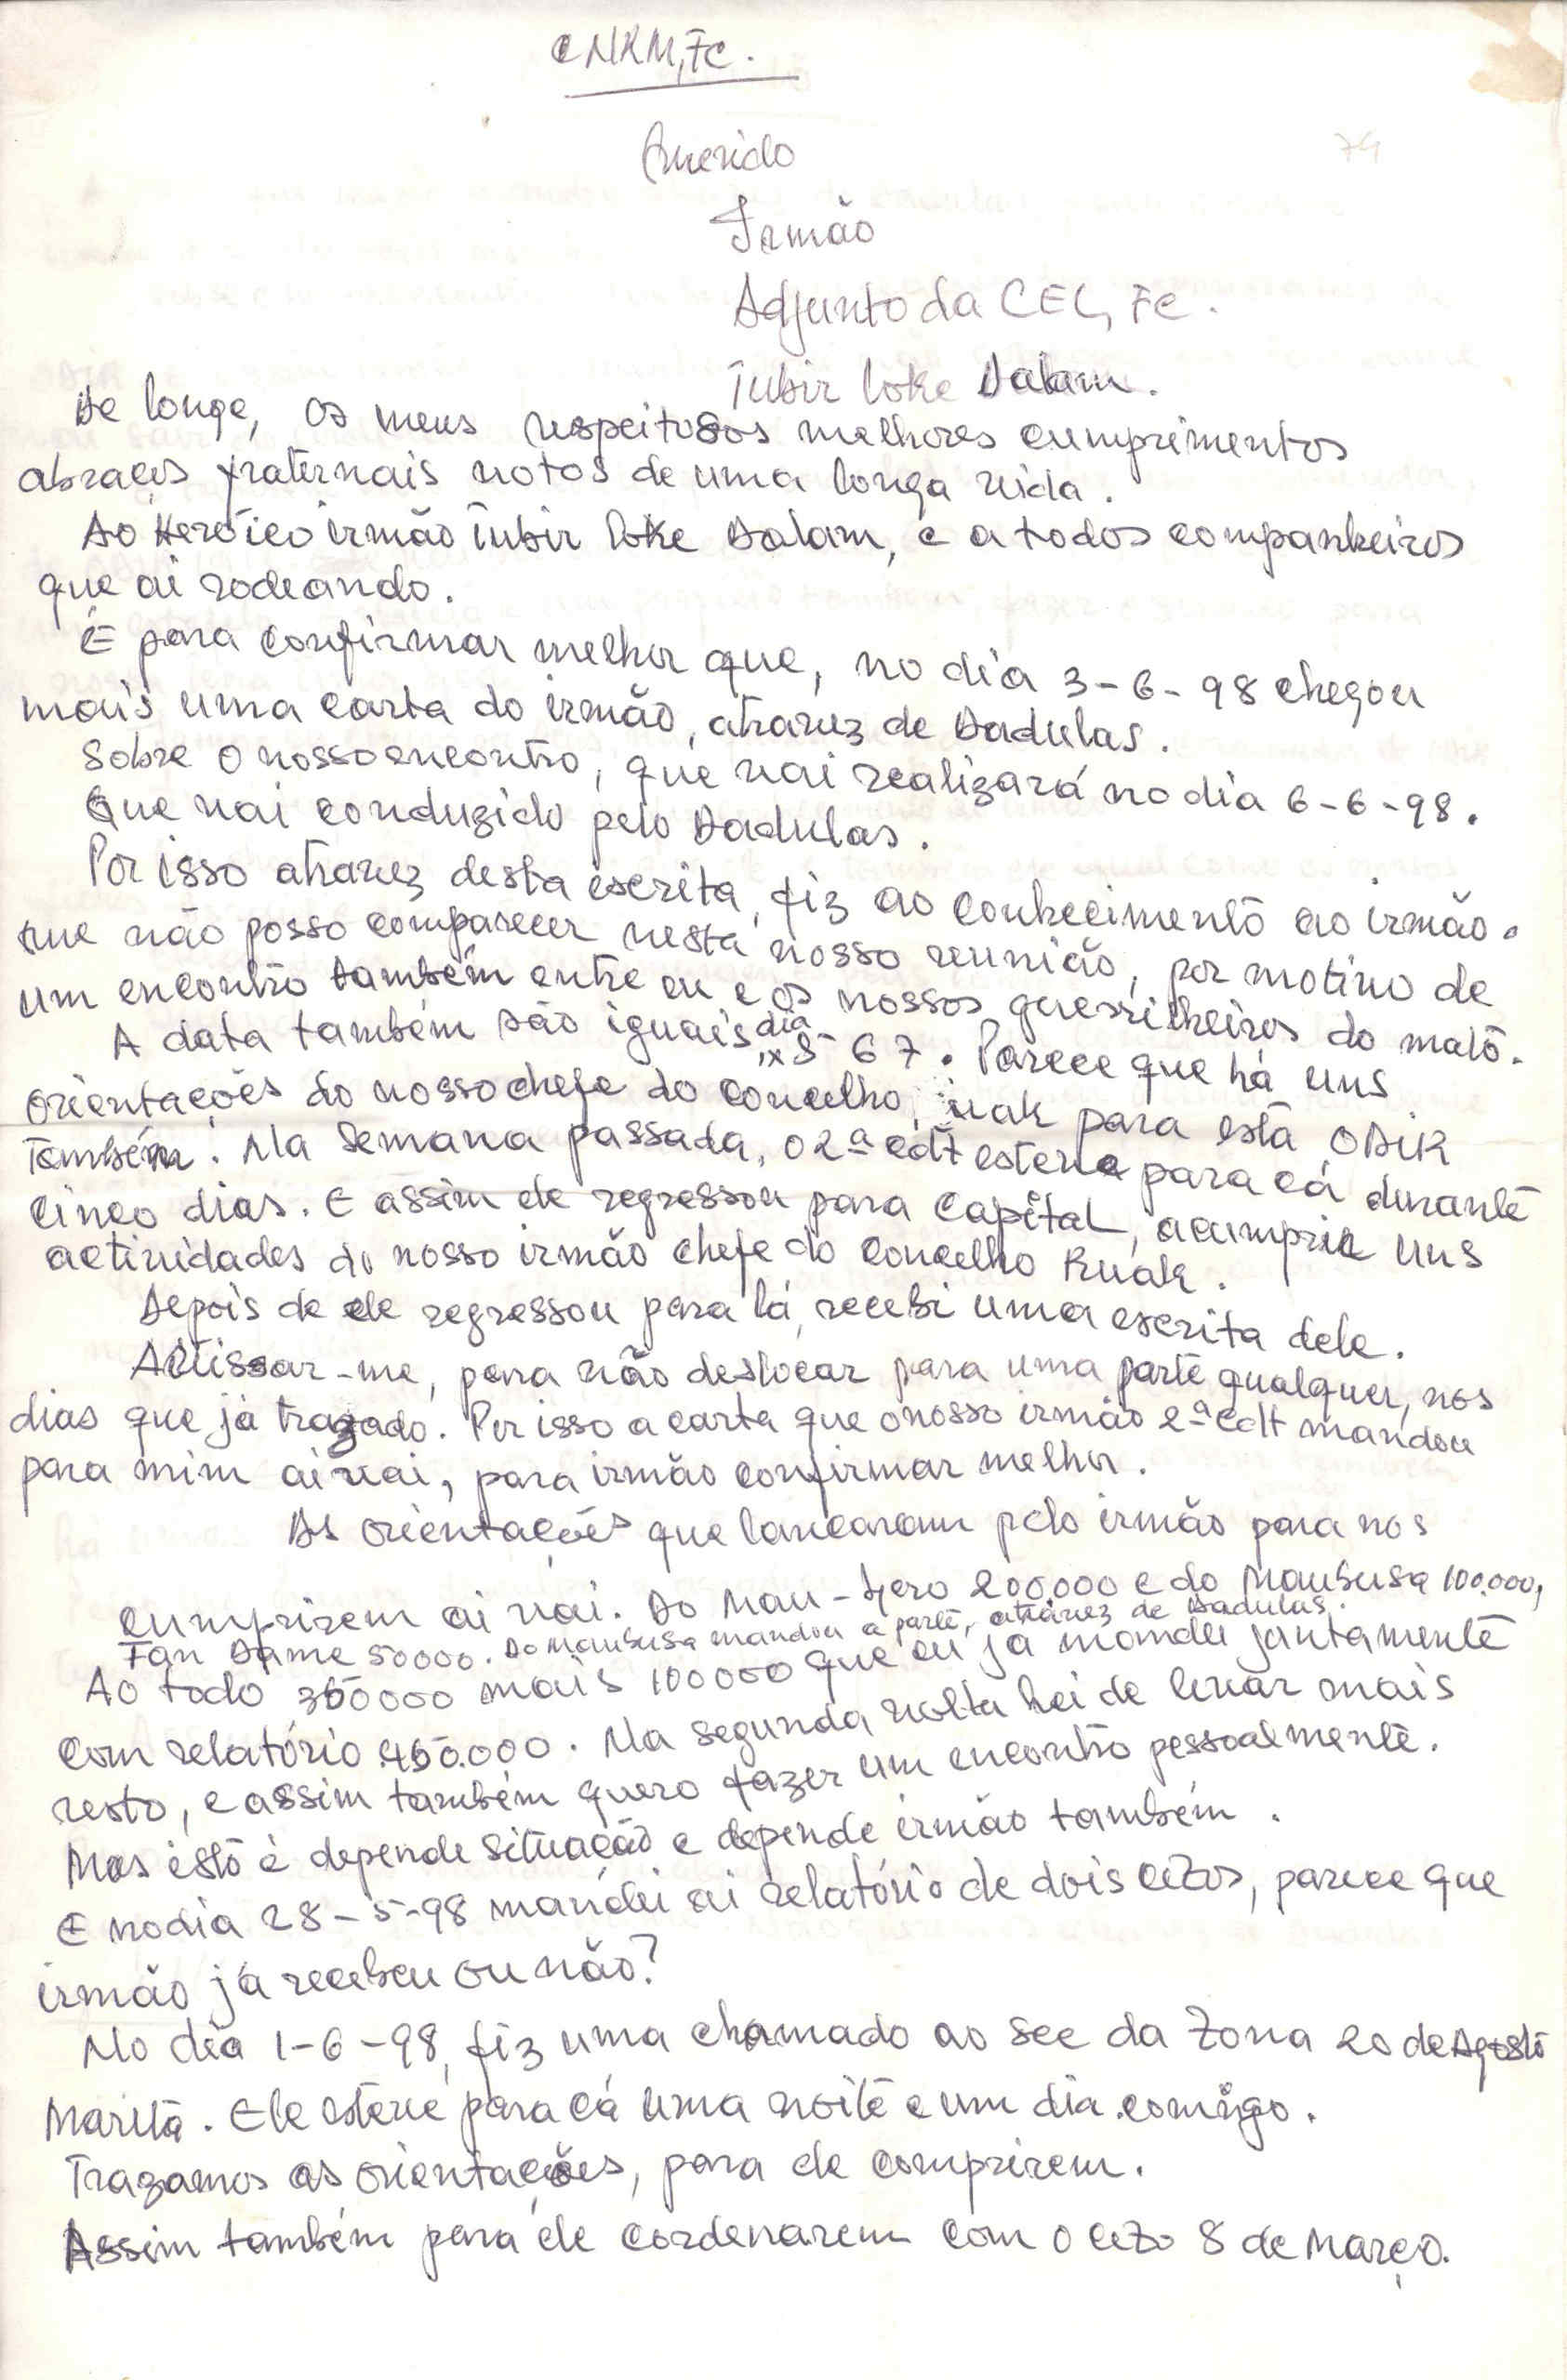 CNRM, FC.
74
Querido
Irmão
Adjunto da CEL, FC.
Tubir loke Dalam.
De longe, os meus respeitosos melhores cumprimentos
abraços fraternais votos de uma longa vida.
Ao Heróico irmão Tubir loke Dalam, e a todos companheiros
que ai rodeando.
É para confirmar melhor que, no dia 3-6-98 chegou
mais uma carta do irmão, atravez de Dadulas.
Sobre o nosso encontro, que vai realizará no dia 6-6-98.
Que vai conduzido pelo Dadulas.
Por isso atravez desta escrita, fiz ao conhecimento ao irmão.
que não posso comparecer nesta nosso reunião, por motivo de
um encontro também entre eu e os nossos guerrilheiros do mato.
A data também são iguais dia 5 6 7. Parece que há uns
orientações do nosso chefe do concelho, para está ODIR
Também. Na semana passada, o 2º cdt esteve para cá durante
cinco dias. E assim ele regressou para Capital, acumprir uns
actividades do nosso irmão chefe do Concelho Ruak.
Depois de ele regressou para lá, recebi uma escrita dele.
Avissar-me, para não deslocar para uma parte qualquer, nos
dias que já trazado. Por isso a carta que o nosso irmão 2º cdt mandou
para mim ai vai, para irmão confirmar melhor.
As orientações que lancaram pelo irmão para nos
cumprirem ai vai. Do Mau-fero 200.000 e do Maubusa 100.000,
Fan Dame 50000. Do Maubusa mandou a parte, atravez de Dadulas.
Ao todo 350000 mais 100000 que eu já mandei jantamente
com relatório 450.000. Na segunda volta hei de levar mais
resto, e assim também quero fazer um encontro pessoalmente.
Mas isto é depende situação e depende irmão também.
E no dia 28-5-98 mandei ai relatório de dois cezos, parece que
irmão já recebeu ou não?
No dia 1-6-98, fiz uma chamado ao sec da Zona 20 de Agosto
Marita. Ele esteve para cá uma noite e um dia comigo.
Trazamos as orientações, para ele comprirem.
Assim também para ele cordenarem com o cezo 8 de Março.